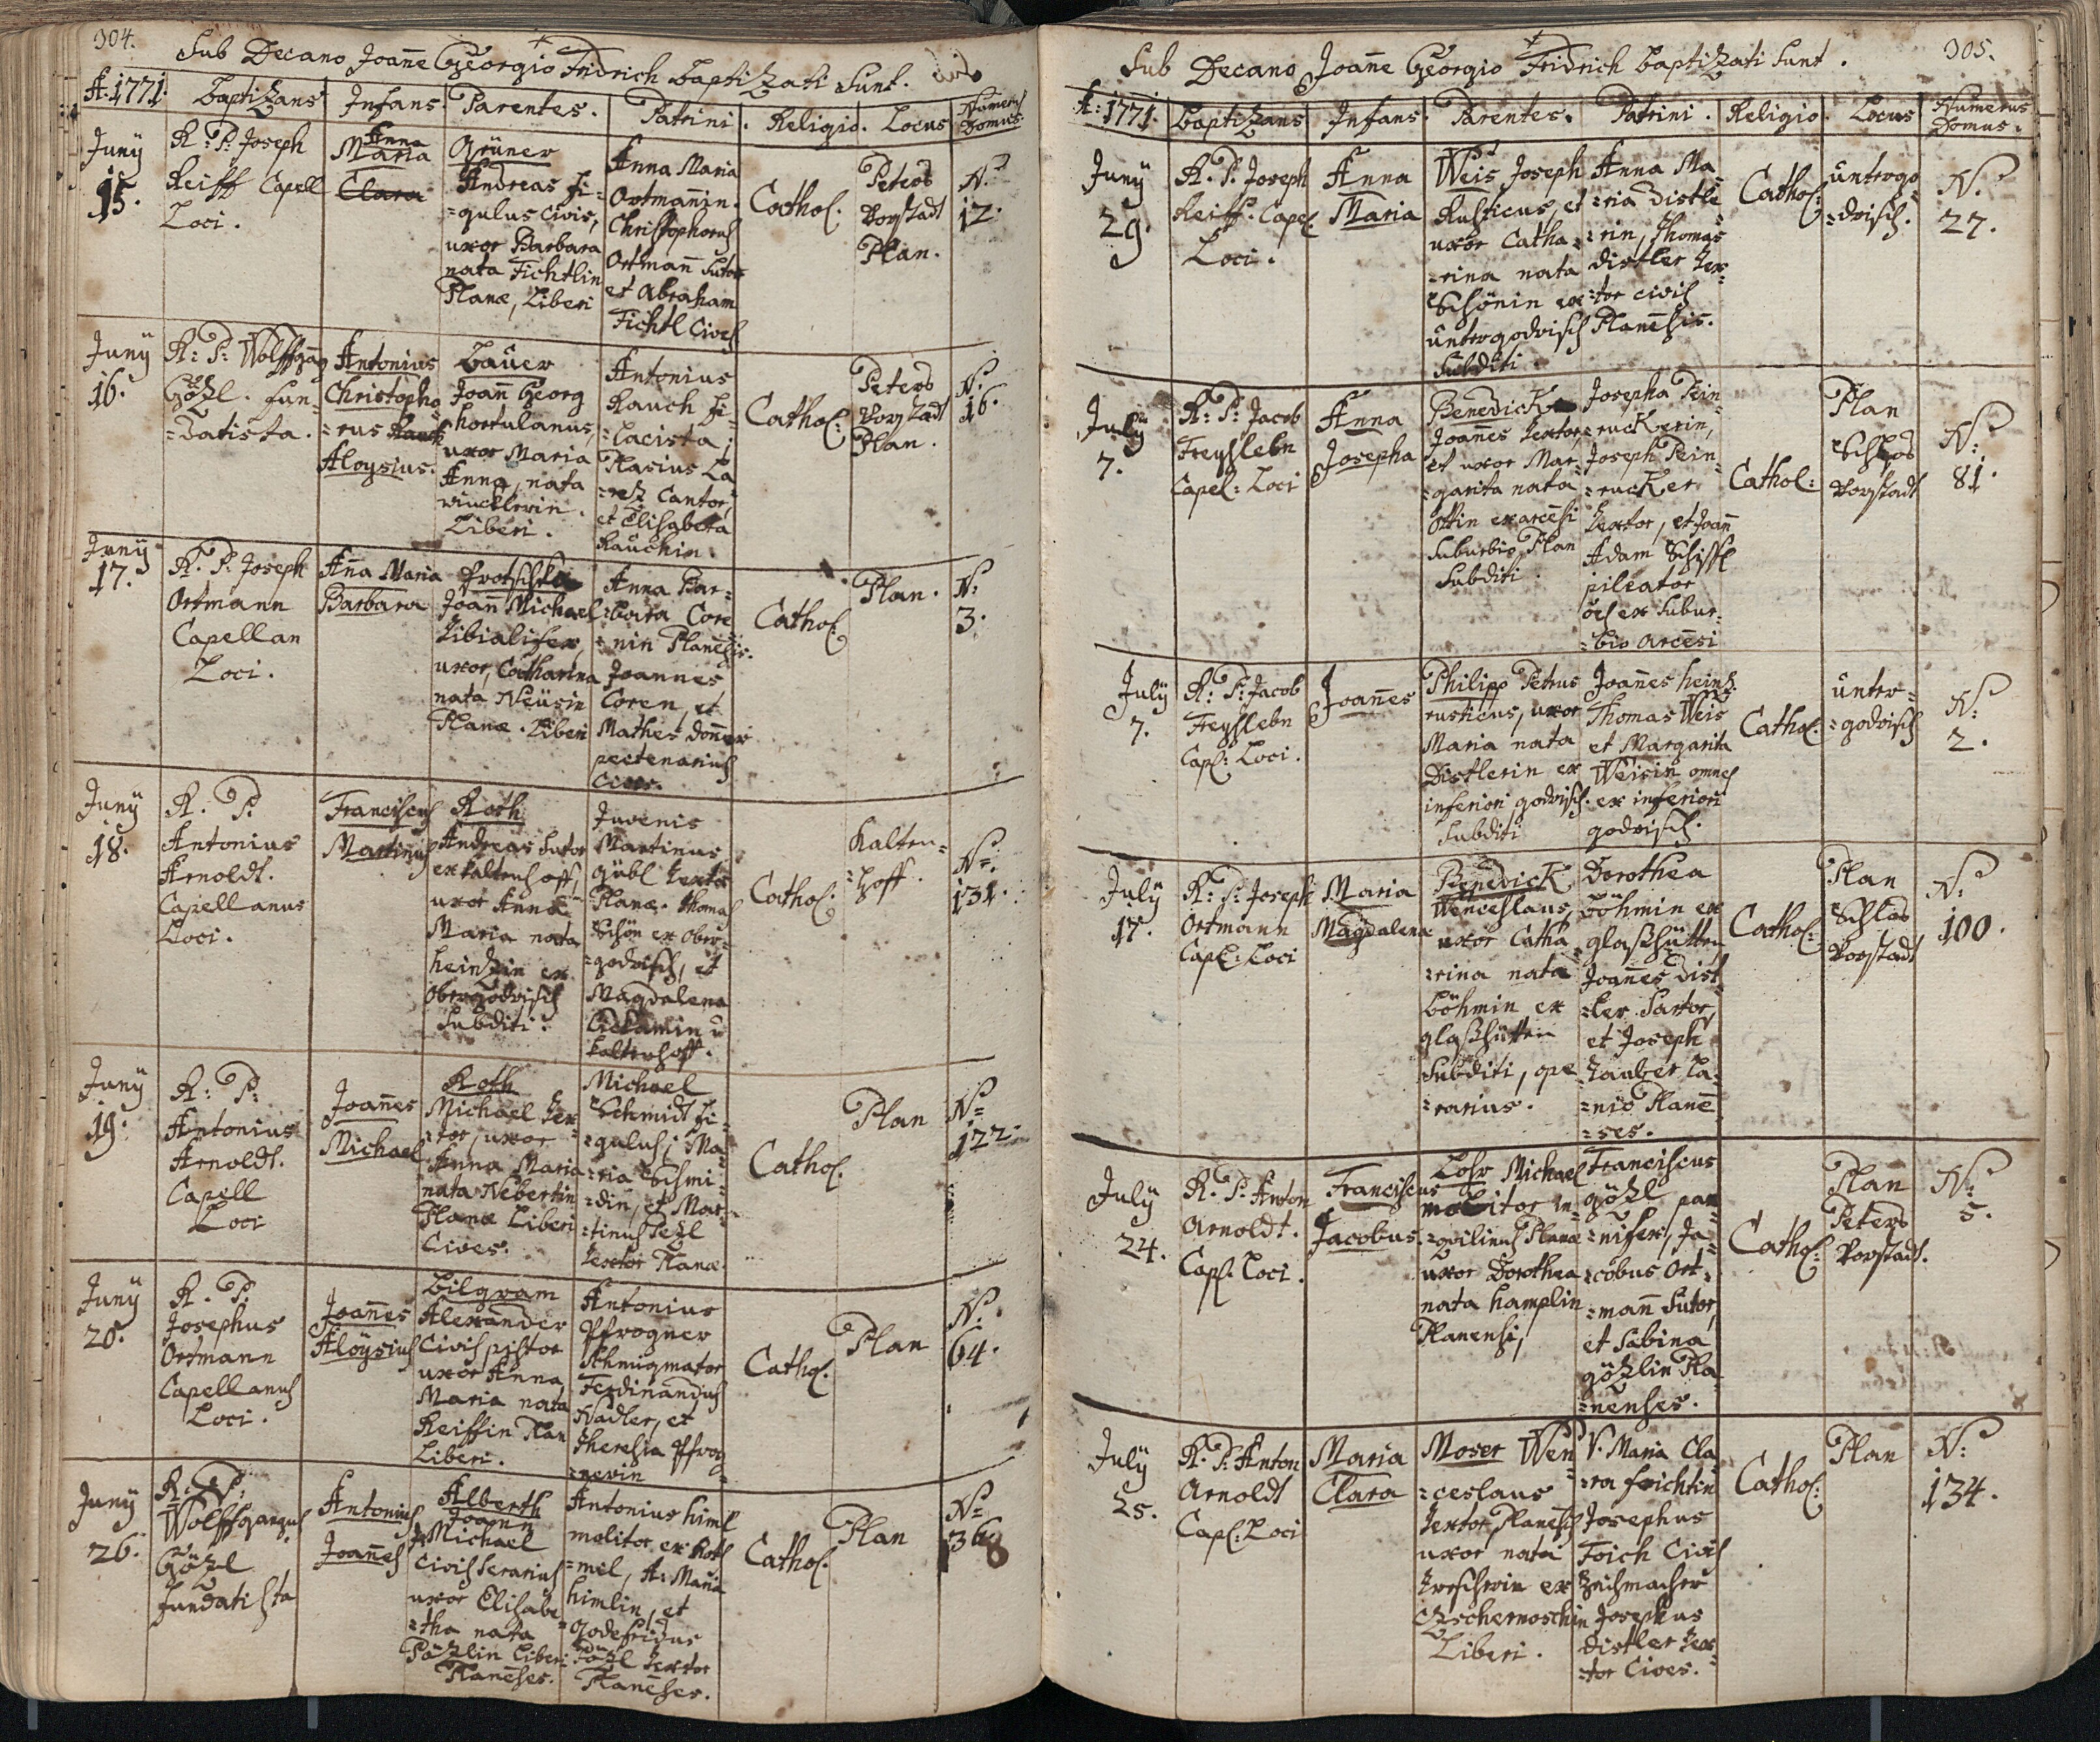 304.
Sub Decano Joañe Georgio Fridrich baptizati Sunt.
A. 1771. Baptizans Infans. Parentes. Patrini. Religio. Locus Numerus Domus.
Juny
15.
R. P. Joseph
Reiff Capell
Loci.
Anna
Maria
Clara
Grüner
Andreas fi=
=gulus civis,
uxor Barbara
nata Fichtlin
Planæ, Liberi
Anna Maria
Ortmañin.
Christophorus
Ortmañ Sutor
et Abraham
Fichtl Cives
Cathol.
Peters
Vorstadt
Plan.
N.
12.
Juny
16.
R: P: Wolffgang
Gözl. fun=
=datista.
Antonius
Christopho
=rus
Aloysius.
Bauer
Joañ Georg
hortulanus,
uxor Maria
Anna, nata
Wincklerin.
Liberi.
Antonius
Rauch
Plasius La
=rez Cantor,
et Elisabeta
Rauchin.
Cathol:
Peters
Vorstadt
Plan.
N.
16.
Juny
17.
R. P. Joseph
Ortmann
Capellan
Loci.
Aña Maria
Barbara
Joañ Michael
uxor, Catharina
nata Neüsin
Planæ. Liberi
Anna Bar=
=bara Core
=nin Planẽsis.
Joannes
Coren, et
Mathes
pectenarius
Cives.
Cathol:
Plan.
N:
3.
Juny
18.
R. P.
Antonius
Arnoldt.
Capellanus
Loci.
Franciscus
Martinus
Roth
Andreas Sutor
ex kaltenhoff,
uxor Anna
Maria nata
heintzin ex
obergodrisch
Subditi.
Juvenis
Martinus
gübl textor
Planæ. Thomas
Schön ex ober=
=godrisch, et
Magdalena
kaltenhoff.
Cathol:
Kalten=
=hoff.
N:
131.
Juny
19.
R: P:
Antonius
Arnoldt.
Capell
Loci
Joañes
Michael
Roth
Michael tex
=tor, uxor
Anna Maria
nata Nebertin
Planæ Liberi
Cives.
Michael
Schmidt fi=
=gulus; Ma=
=ria Schmi=
=din, et Mar=
=tinus Pezl
textor Planæ
Cathol.
Plan
N=
122.
Juny
20.
R. P.
Josephus
Ortmann
Capellanus
Loci.
Joañes
Aloÿsius
Bilgram
Alexander
Civis pistor
uxor Anna
Maria nata
Reiffin Plan
Liberi.
Antonius
Pfrogner
Schmigmator
Ferdinandus
Nadler, et
Theresia Pfrog
=nerin
Cathol.
Plan
N:
64.
Juny
26.
R. P:
Wolffgangus
Gözl
Fundatista
Antonius
Joañes
Alberth
Joann
Michael
Civis serarius
uxor Elisabe
=tha nata
Päzlin Liberi
Planẽses.
Antonius himl
molitor ex Roth
=mel, A: Maria
himlin, et
Godefridus
Pözl textor
Planẽses.
Cathol.
Plan
N=
368
305.
Sub Decano Joañe Georgio Fridrich baptizati Sunt.
A: 1771. Baptizans Infans. Parentes. Patrini. Religio. Locus Numerus Domus.
Juny
29.
R. P. Joseph
Reiff. Capel
Loci.
Anna
Maria
Weis Joseph
Rusticus, et
uxor Catha=
=rina nata
Schönin ex
üntergodrisch
Subditi
Anna Ma
=ria distle
=rin, Thomas
distler tex=
=tor civis
Planẽsis.
Cathol:
üntergo
=drisch.
N.
27.
July
7.
R: P: Jacob
Freyslebn
Capel: Loci
Anna
Josepha
Benedick
Joannes textor
et uxor Mar=
=garita nata
Ottin ex arcẽsi
Suburbio Plan
Subditi.
Josepha Pein
=ruckerin,
Joseph Pein=
=rucker
textor, et Joañ
Adam Schiffl
pileator
ões ex Subur=
=bio arcẽsi
Cathol:
Plan
Schlos
Vorstadt
N:
81.
July
7.
R: P: Jacob
Freyslebn
Capl: Loci.
Joañes
Philipp Petrus
rusticus, uxor
Maria nata
Distlerin ex
inferiori godrisch.
Subditi
Joañes heinz.
Thomas Weis
et Margarita
Weisin omnes
ex inferiori
godrisch.
Cathol:
ünter=
=godrisch
N:
2.
July
17.
R: P: Joseph
Ortmann
Capl: Loci
Maria
Magdalena
Benedick
Wenceslaus,
uxor Catha
=rina nata
Böhmin ex
glaßhütten
Subditi, ope
=rarius.
Dorothea
Böhmin ex
glaßhütten,
Joañes dist
=ler Sartor,
et Joseph
Zauber La=
=nio Planẽ
=ses.
Cathol:
Plan
Schlos
Vorstadt
N:
100.
July
24.
R. P: Anton
Arnoldt.
Capl. Loci.
Franciscus
Jacobus.
Lohr Michael
molitor in=
=qvilinus Planæ
uxor Dorothea
nata hamplin
Planensi,
Franciscus
gözl pan=
=nifex, Ja=
=cobus Ort=
=mañ Sutor,
et Sabina
gözlin Pla
=nenses.
Cathol:
Plan
Peters
Vorstadt.
N:
5.
July
25.
R. P: Anton
Arnoldt
Capl: Loci
Maria
Clara
Moser Wen
=ceslaus
textor Planẽsis
uxor nata
ex
Tschernoschin
Liberi.
V. Maria Cla
=ra
Josephus
Foich Civis
Zeichmacher
Josephus
Distler tex
=tor Cives.
Cathol:
Plan
N:
134.